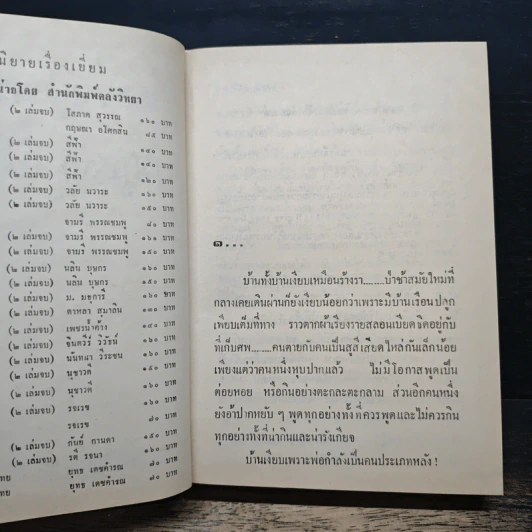 นิยายเรื่องเยี่ยม
สำนักพิมพ์คลังวิทยา
(๒ เล่มจบ) โสภาค สุวรรณ ๑๖๐ บาท
กฤษณา อโศกสิน ๘๕ บาท
(๒ เล่มจบ) สีฟ้า ๑๔๐ บาท
(๒ เล่มจบ) สีฟ้า ๑๔๐ บาท
(๒ เล่มจบ) สีฟ้า ๑๒๐ บาท
(๒ เล่มจบ) วลัย นวาระ ๑๖๐ บาท
(๒ เล่มจบ) วลัย นวาระ ๑๕๐ บาท
จามรี พรรณชมพู ๘๐ บาท
(๒ เล่มจบ) จามรี พรรณชมพู ๑๖๐ บาท
(๒ เล่มจบ) จามรี พรรณชมพู ๑๕๐ บาท
(๒ เล่มจบ) นลิน บุษกร ๑๖๐ บาท
(๒ เล่มจบ) นลิน บุษกร ๑๕๐ บาท
(๒ เล่มจบ) ม. มธุการี ๑๖๐ บาท
(๒ เล่มจบ) ดาหลา สุมาลิน ๑๓๐ บาท
(๒ เล่มจบ) เพชรน้ำค้าง ๑๔๐ บาท
(๒ เล่มจบ) จินตวีร์ วิวัธน์ ๑๓๐ บาท
(๒ เล่มจบ) นันทนา วีระชน ๑๖๐ บาท
(๒ เล่มจบ) นุชาวดี ๑๕๐ บาท
(๒ เล่มจบ) นุชาวดี ๑๖๐ บาท
(๒ เล่มจบ) รจเรข ๑๖๐ บาท
รจเรข ๗๐ บาท
(๒ เล่มจบ) กันย์ กานดา ๑๕๐ บาท
(๒ เล่มจบ) รตี รจนา ๑๖๐ บาท
ไทย ยุทธ เดชคำรณ ๗๐ บาท
ไทย ยุทธ เดชคำรณ ๗๐ บาท
๑...
บ้านทั้งบ้านเงียบเหมือนร้างรา........ป่าช้าสมัยใหม่ที่
กลางเคยเดินผ่านก็ยังเงียบน้อยกว่าเพราะมีบ้านเรือนปลูก
เพียบเต็มที่ทาง ราวตากผ้าเรียงรายสลอนเบียดชิดอยู่กับ
ที่เก็บศพ........คนตายกับคนเป็นสูสีเสียดไหล่กันเล็กน้อย
เพียงแต่ว่าคนหนึ่งหุบปากแล้ว ไม่มีโอกาสพูดเป็น
ต่อยหอย หรือกินอย่างตะกละตะกลาม ส่วนอีกคนหนึ่ง
ยังอ้าปากหยับ ๆ พูดทุกอย่างทั้งที่ควรพูดและไม่ควรกิน
ทุกอย่างทั้งที่น่ากินและน่ารังเกียจ
บ้านเงียบเพราะพ่อกำลังเป็นคนประเภทหลัง!